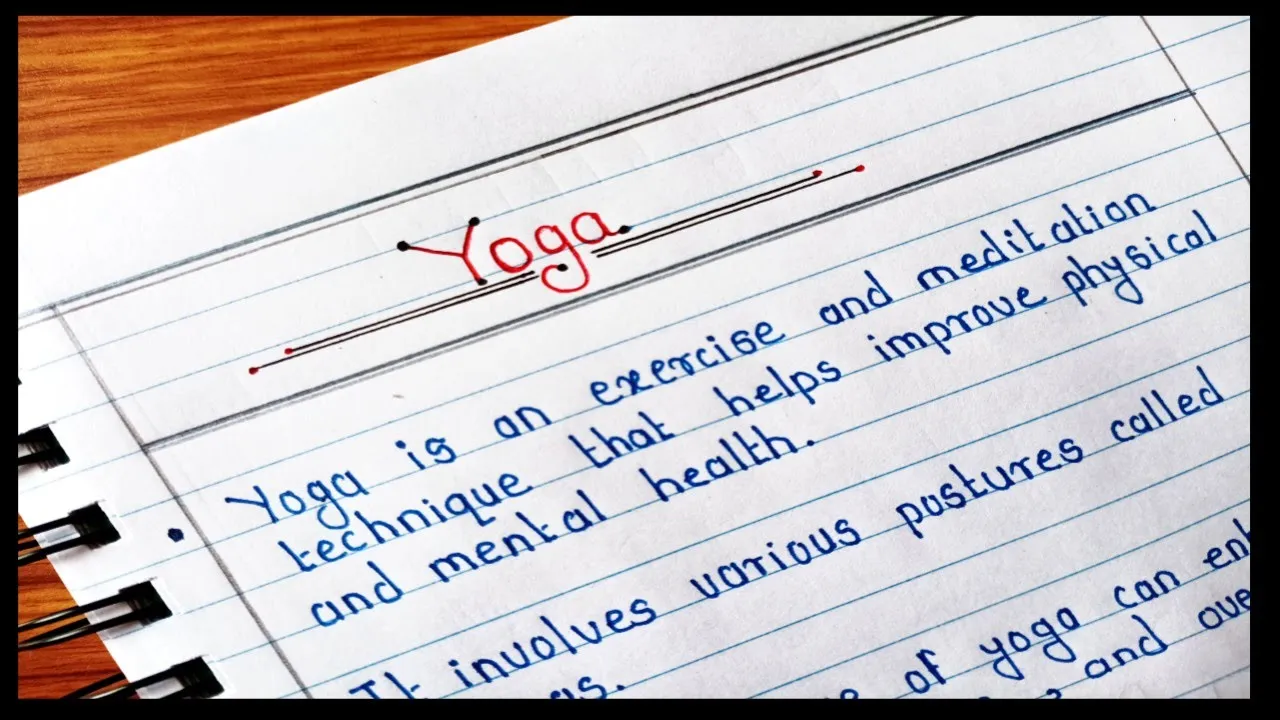 Yoga
Yoga is an exercise and meditation
technique that helps improve physical
and mental health.
It involves various postures called
of yoga can
and